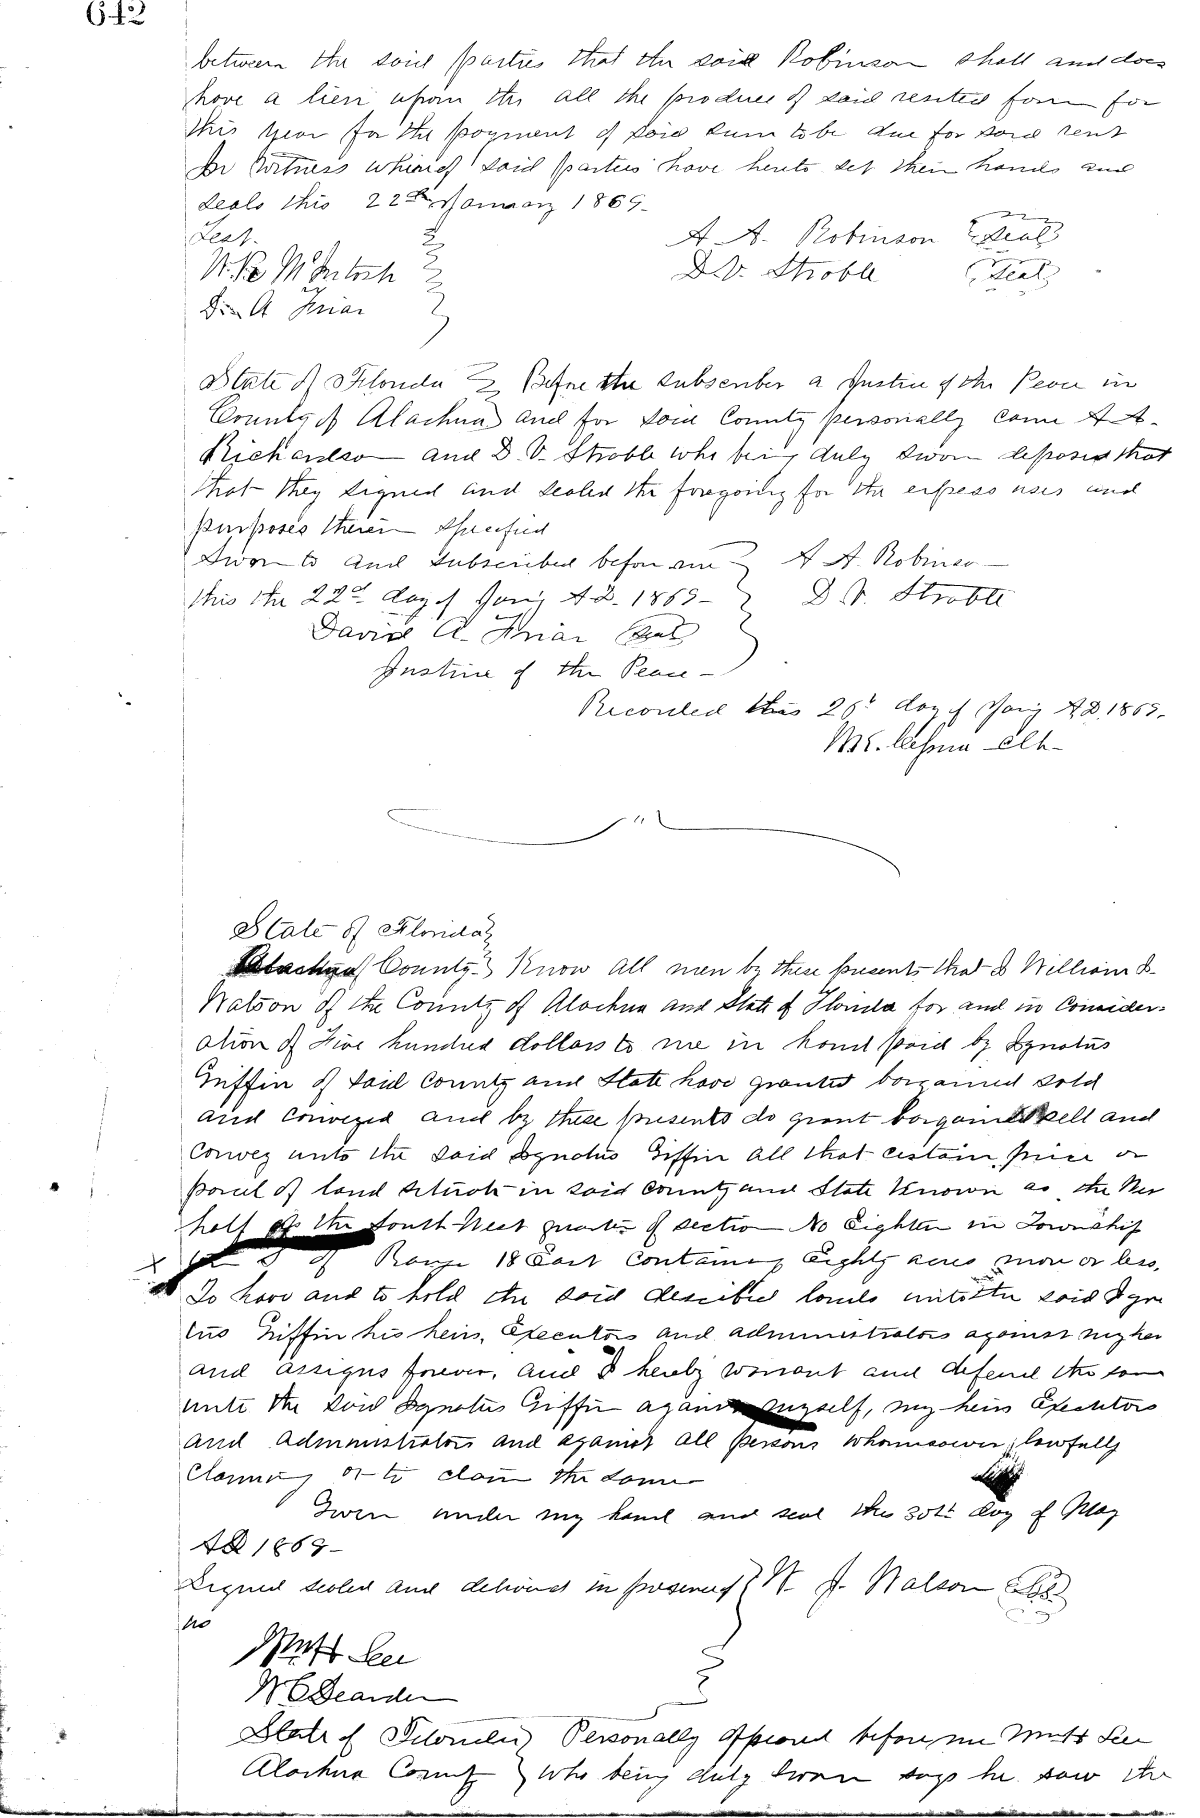 642
between the said parties that the said Robinson shall and does
have a lien upon the all the produce of said rented farm for
this year for the payment of said sum to be due for said rent
In witness whereof said parties have hereto set their hands and
seals this 22nd January 1869-
Test.
A A. Robinson Seal
McIntosh
D. V. Stroble Seal
A Friar
State of Florida Before the subscriber a Justice of the Peace in
County of Alachua and for said County personally came A A.
Richardson and D. V. Stroble who being duly sworn deposes that
that they signed and sealed the foregoing for the express uses and
purposes therein specified
Sworn to and subscribed before me A A. Robinson
this the 22d day of Jany A D. 1869- D. V. Stroble
David A. Friar Seal
Justice of the Peace-
Recorded this 26t day of Jany A D. 1869.
Clk-
State of Florida
Alachua County Know all men by these presents that I William J.
Watson of the County of Alachua and State of Florida for and in consider-
ation of Five hundred dollars to me in hand paid by Ignatus
Griffin of said County and State have granted bargained sold
and conveyed and by these presents do grant bargain sell and
convey unto the said Ignatus Giffin all that certain piece or
parcel of land situate in said county and State Known as the Wes
half of the South West quarter of section No Eighten in Township
S of Range 18 East containing Eighty acres more or less.
To have and to hold the said described lands unto the said Igna
tus Griffin his heirs, Executors and administrators against my hei
and assigns forever, and I hereby warrant and defend the same
unto the said Ignatus Giffin against myself, my heirs Executors
and administrators and against all persons whomsoever, lawfully
claiming or to claim the same
Given under my hand and seal this 30th day of May
AD 1869-
Signed sealed and delivered in presence of W. J. Watson
us
Matt Lee
W C Dearden
State of Florida Personally appeared before me Matt Lee
Alachua County who being duly sworn says he saw the